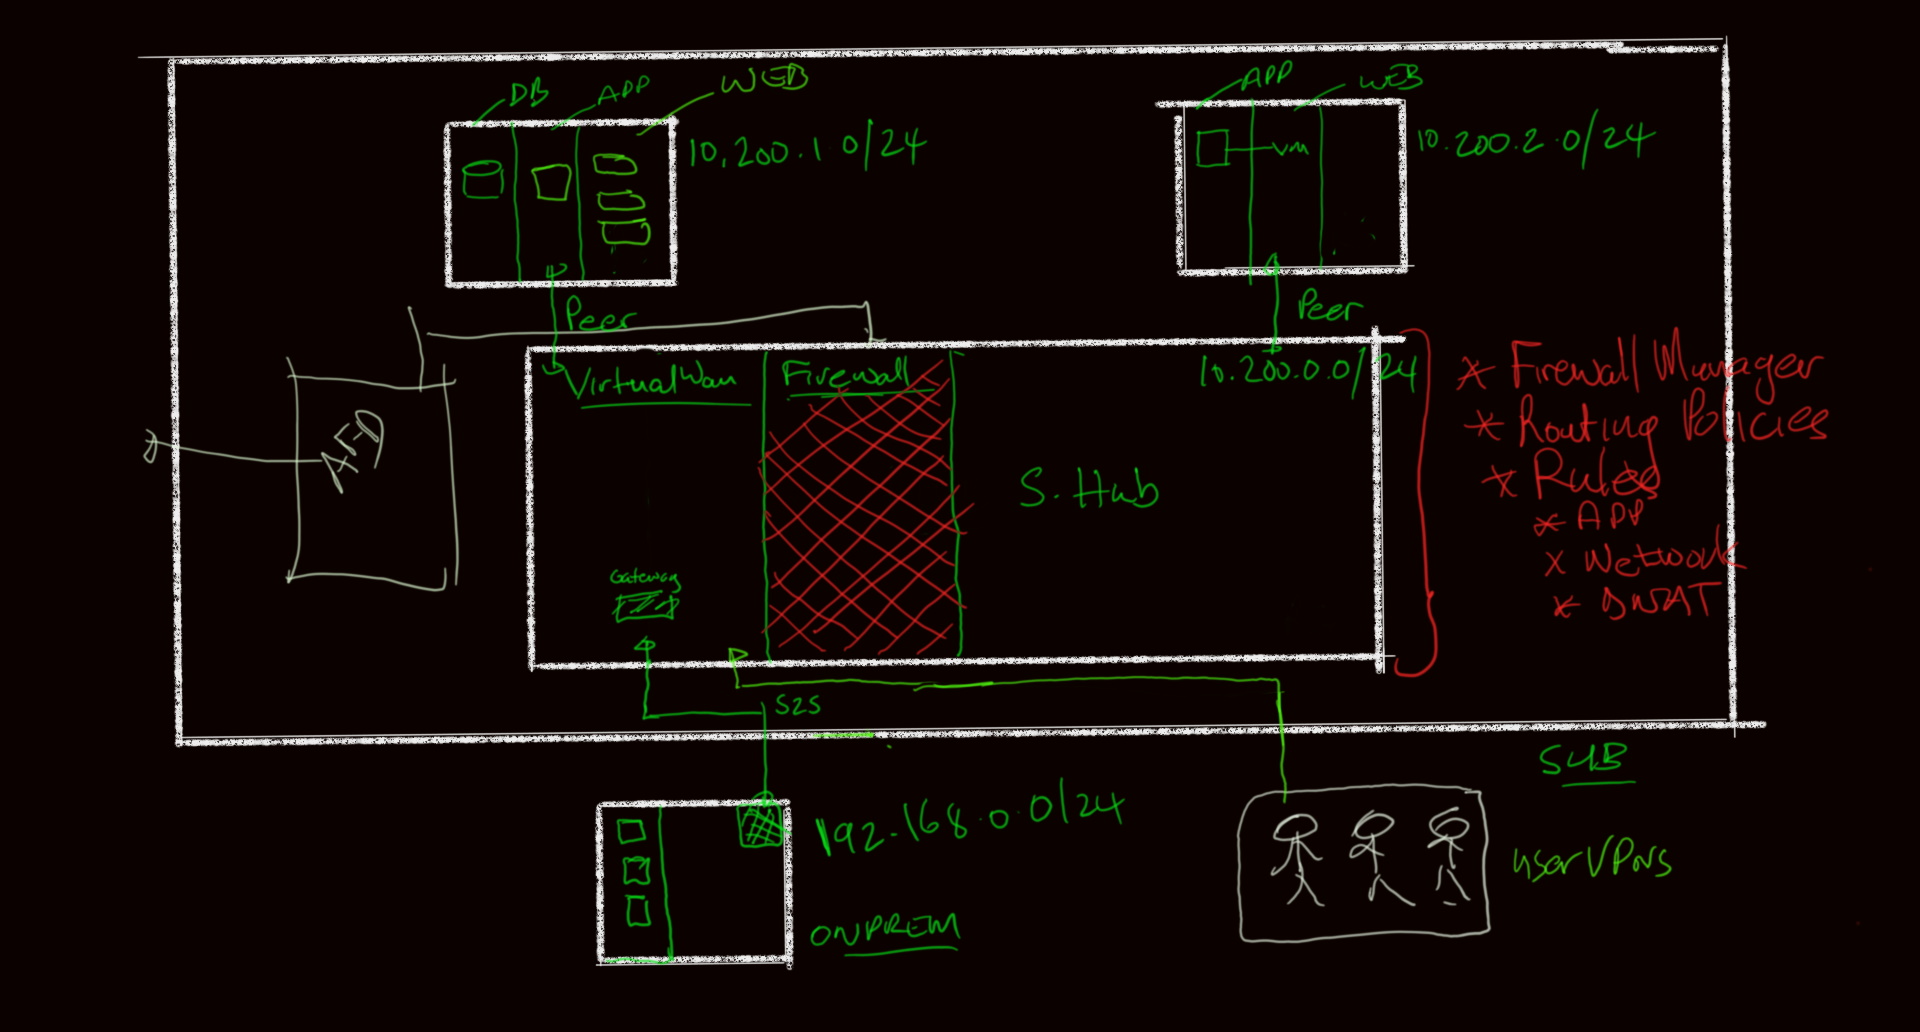 DB
APP
WEB
10.200.1.0/24
APP
WEB
VM
10.200.2.0/24
Peer
Peer
AFD
VirtualWan
Firewall
10.200.0.0/24
S.Hub
Gateway
* Firewall Manager
* Routing Policies
* Rules
* APP
x Network
* DNAT
S2S
SUB
192.168.0.0/24
ONPREM
userVPNs